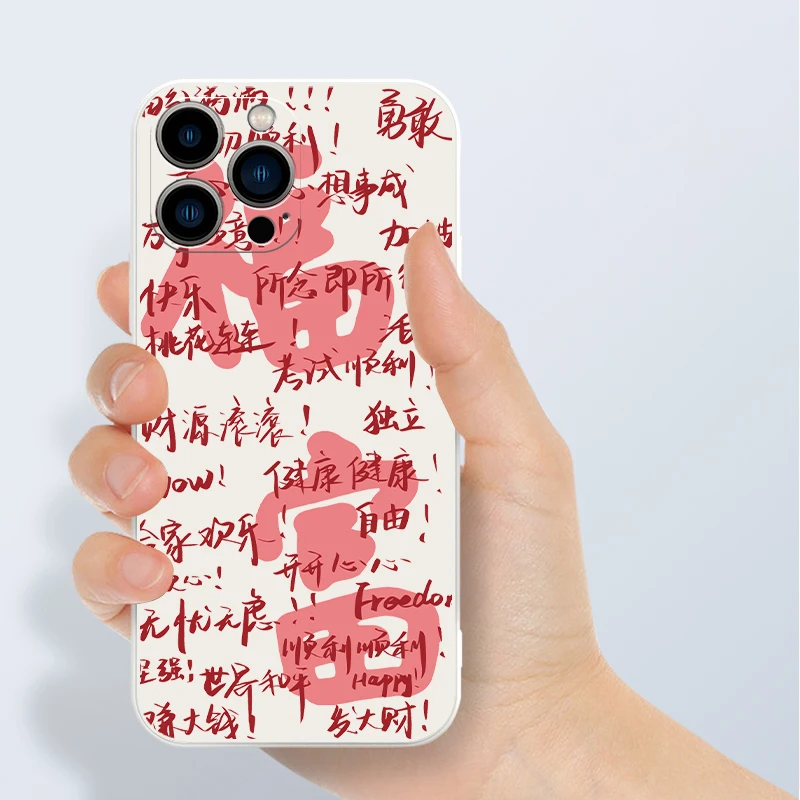 勇敢
顺利!
想事成
快乐 所念即所
桃花连连!
考试顺利!
财源滚滚! 独立
健康健康!
家欢乐! 自由!
开开心心
心!
无忧无虑!! Freedo
顺利顺利!
坚强! 世界和平 Happy!
赚大钱! 发大财!
福
富